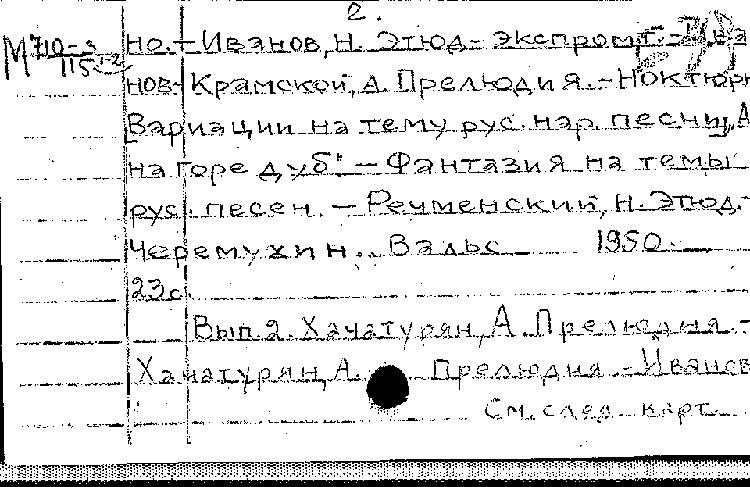 2.
М 710-3 но.- Иванов, Н. Этюд-экспромт.-
115 1-2
нов-Крамской, А. Прелюдия.-Ноктюрн
Вариации на тему рус. нар. песни „А
на горе дуб" - Фантазия на темы
рус. песен. - Речменский, Н. Этюд.-
Черемухин.. Вальс 1950.
23 с.
Вып 2. Хачатурян, А. Прелюдия.-
Хачатурян, А. Прелюдия.-Иванов
См. след. карт.